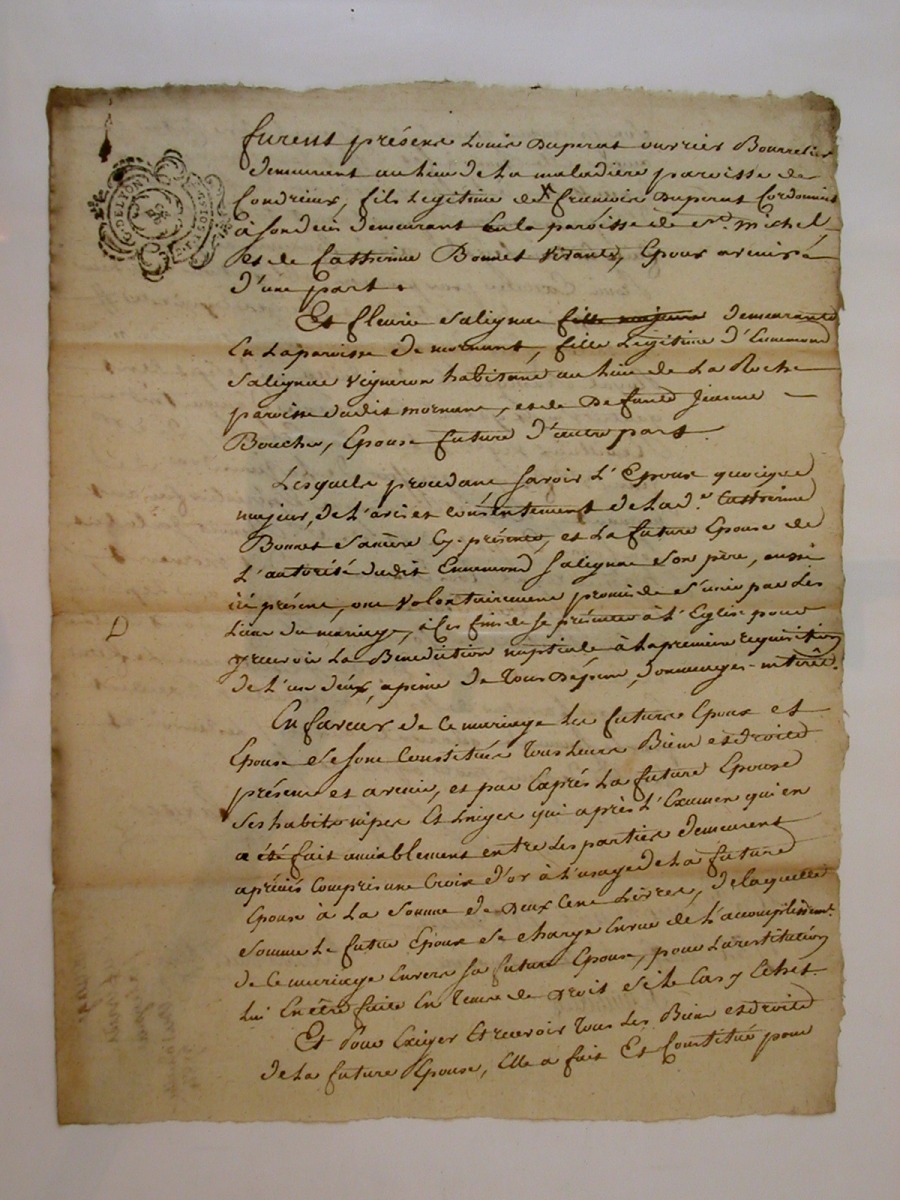 G. DE LYON
furent présens Louis Duperat ouvrier Bourrelier
demeurant au lieu de La maladiere paroisse de
Condrieux, fils Legitime de françois Duperat Cordonnier
à demeurant En la paroisse de St. michel
et de Catherine Bonnet vivants, Epoux avenir
d'une part.
Et fleurie Salignac fille majeure demeurante
En La paroisse de mornant, fille Legitime d'Ennemond
Salignac vigneron habitant au lieu de La Roche
paroisse dudit mornant, et de Defunte Jeanne
Bouchu, Epouse future d'autre part.
Lesquels procedant savoir L'Epoux quoique
majeur, de L'avis et consentement de la de. Catherine
Bonnet sa mère Cy-présente, et La future Epouse de
L'autorité dudit Ennemond Salignac son père, aussi
ici présent, ont volontairement promis de s'unir par Les
Liens du mariage, à Ces fins de se présenter à L'Eglise pour
y recevoir La Benediction nuptiale à La premiere requisition
de L'un d'eux, a peine de Tous Dépens, Dommages-intérêts.
En faveur de ce mariage Les futurs Epoux et
Epouse se sont Constitués Tous Leurs Biens et droits
présens et avenir, et par Exprès La future Epouse
Ses habits nipes Et Linges qui après L'Examen qui en
a été fait amiablement entre Les parties demeurent
apréciés Compris une Croix d'or à L'usage de La future
Epouse à La Somme de Deux Cent Livres, de laquelle
somme Le futur Epoux se charge En vue de L'accomplissemt.
de Ce mariage Envers sa future Epouse, pour La restitution
lui En être faite En Termes de Droit si le Cas y Echet.
Et pour Exiger Et recevoir Tous Les Biens et droits
de La future Epouse, Elle a fait Et Constitué pour